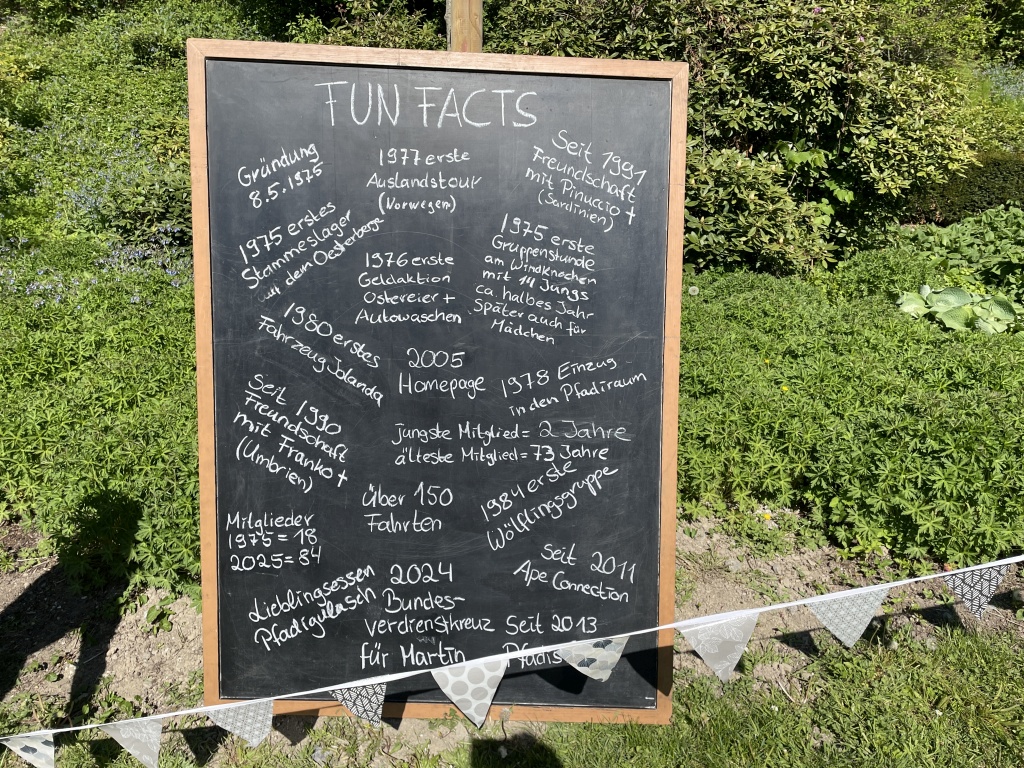 FUN FACTS
Gründung
8.5.1975
1977 erste
Auslandstour
(Norwegen)
Seit 1991
Freundschaft
mit Pinuccio +
(Sardinien)
1975 erstes
Stammeslager
auf dem Oesterberge
1976 erste
Geldaktion
Ostereier +
Autowaschen
1975 erste
Gruppenstunde
am Windknochen
mit 14 Jungs
ca. halbes Jahr
Später auch für
Mädchen
1980 erstes
Fahrzeug Jolanda
2005
Homepage
1978 Einzug
in den Pfadiraum
Seit 1990
Freundschaft
mit Franko +
(Umbrien)
jüngste Mitglied = 2 Jahre
älteste Mitglied = 73 Jahre
über 150
Fahrten
1984 erste
Wölflingsgruppe
Mitglieder
1975 = 18
2025 = 84
Seit 2011
Ape Connection
Lieblingsessen
Pfadigulasch
2024
Bundes-
verdienstkreuz
für Martin
Seit 2013
Pfadis